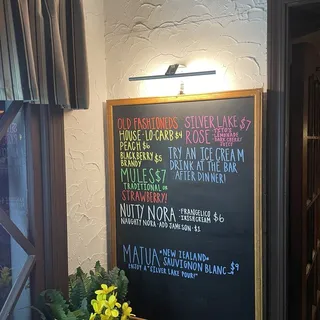 OLD FASHIONEDS
HOUSE · LO-CARB $4
PEACH $6
BLACKBERRY $5
BRANDY
MULES $7
TRADITIONAL OR
STRAWBERRY!
SILVER LAKE $7
ROSE
LEMONADE
TRY AN ICE CREAM
DRINK AT THE BAR
AFTER DINNER!
NUTTY NORA · FRANGELICO $6
IRISH CREAM
NAUGHTY NORA · ADD JAMESON · $1
MATUA *NEW ZEALAND*
SAUVIGNON BLANC $9
ENJOY A "SILVER LAKE POUR!"